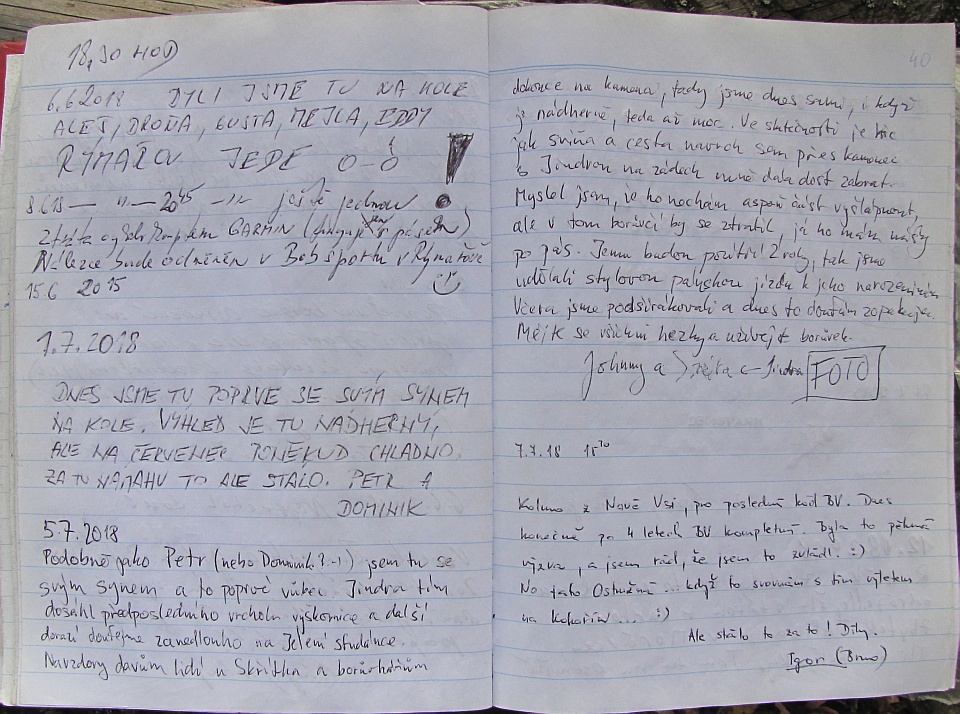 18,30 HOD
6.6.2018 BYLI JSME TU NA KOLE
ALEŠ, DROŇA, GUSTA, MEJLA, EDDY
RÝMAŘOV JEDE !
8.6.18 — 11 — 20 45 — 11 — ještě jednou
Ztráta GARMIN
Nálezce bude odměněn v Bobisportu v Rýmařově
15.6 2015
1.7.2018
DNES JSME TU POPRVÉ SE SVÝM SYNEM
NA KOLE. VÝHLED JE TU NÁDHERNÝ,
ALE NA ČERVENEC PONĚKUD CHLADNO.
ZA TU NÁMAHU TO ALE STÁLO. PETR A
DOMINIK
5.7.2018
Podobně jako Petr (nebo Dominik?:-) jsem tu se
svým synem a to poprvé vůbec. Jindra tím
dosáhl předposledního vrcholu výškovnice a další
dorazí doufejme zanedlouho na Jelení studánce.
Navzdory davům lidí u Skřítka a borůvkářům
40
dokonce na kameni, tady jsme dnes sami, i když
je nádherně, teda až moc. Ve skutečnosti je hic
jak sviňa a cesta navrch sem přes kamenec
s Jindrou na zádech mně dala dost zabrat.
Myslel jsem, že ho nechám aspoň část vyšlápnout,
ale v tom borůvčí by se ztratil, já ho mám
po pás. Jemu budou pozítří 2 roky, tak jsme
udělali stylovou jízdu k jeho narozeninám
Včera jsme podširákovali a dnes to doufám zopakujem.
Mějte se všichni hezky a užívejte borůvek.
Johnny a Jindra FOTO
7.7.18
Kolmo z Nové Vsi, pro poslední kód BV. Dnes
konečně po 4 letech BV kompletní. Byla to pěkná
výzva, a jsem rád, že jsem to zvládl. :)
No jako Ostružná ... když to srovnám s tím výletem
na Kokořín ... :)
Ale stálo to za to! Díky.
Igor (Brno)